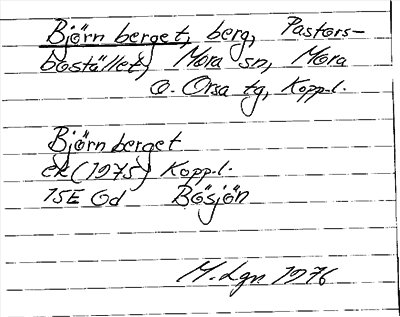 Björnberget, berg, Pastors-
bostället, Mora sn, Mora
o. Orsa tg, Kopp.l.
Björnberget
ek (1975) Kopp.l.
15E 0d Bösjön
M.Lgn 1976